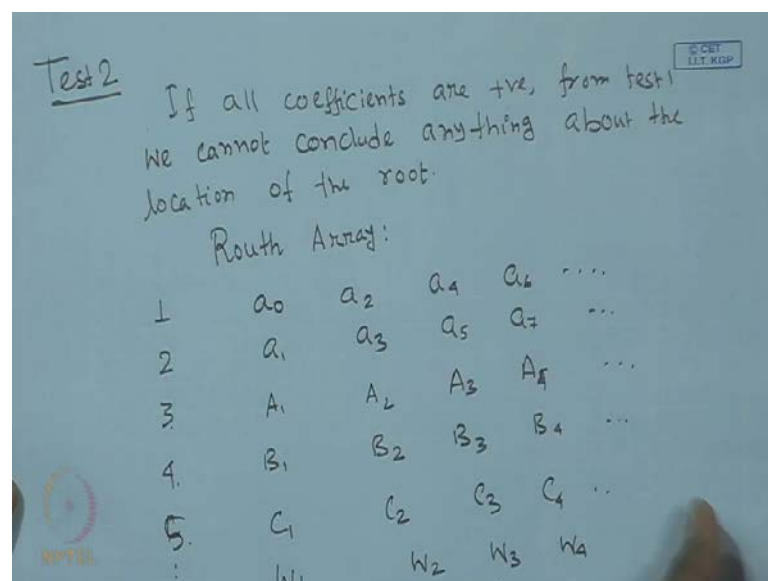 © CET
I.I.T. KGP
Test 2
If all coefficients are +ve, from test 1
we cannot conclude anything about the
location of the root.
Routh Array:
1 a0 a2 a4 a6 ....
2 a1 a3 a5 a7 ...
3. A1 A2 A3 A4 ...
4. B1 B2 B3 B4 ...
5. C1 C2 C3 C4 ..
: W1 W2 W3 W4
NPTEL